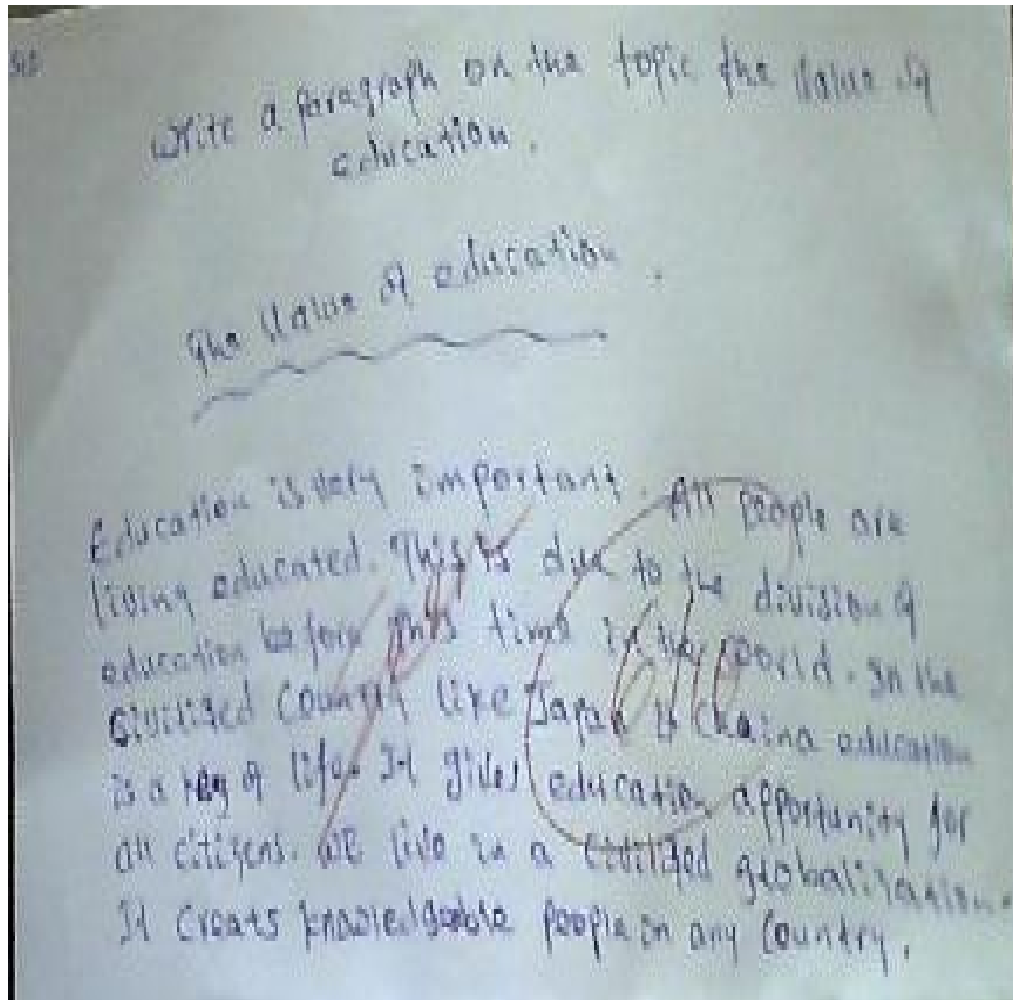 Write a paragraph on the topic the Value of
education.
The Value of education.
Education is very important. All people are
living educated. This is due to the division of
education before this time in the world. In the
civilized country like Japan is Chaina education
is a key of life. It gives education opportunity for
all citizens. We live in a civilized globalization.
It creats knowledgeable people in any country.